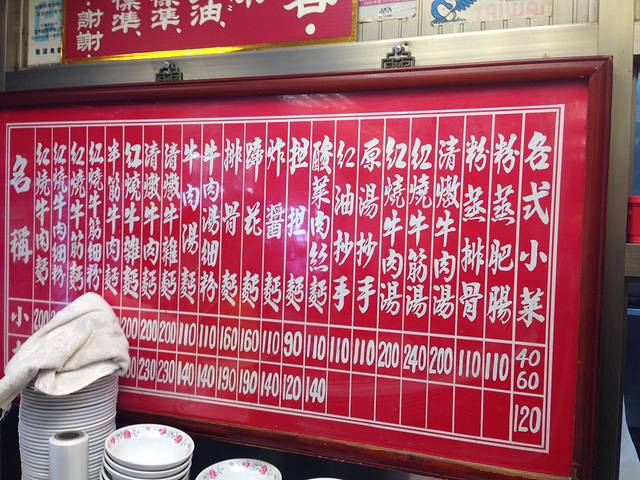 謝謝．
標準、
準、
油、
TAIWAN
名稱 小
紅燒牛肉麵 200
紅燒牛肉細粉
紅燒牛筋麵
紅燒牛筋細粉
半筋牛肉麵
紅燒牛雜麵 200
清燉牛肉麵 200 230
清燉牛雜麵 200 230
牛肉湯麵 110 140
牛肉湯細粉 110 140
排骨麵 160 190
蹄花麵 160 190
炸醬麵 110 140
担担麵 90 120
酸菜肉絲麵 110 140
紅油抄手 110
原湯抄手 110
紅燒牛肉湯 200
紅燒牛筋湯 240
清燉牛肉湯 200
粉蒸排骨 110
粉蒸肥腸 110
各式小菜 40 60 120